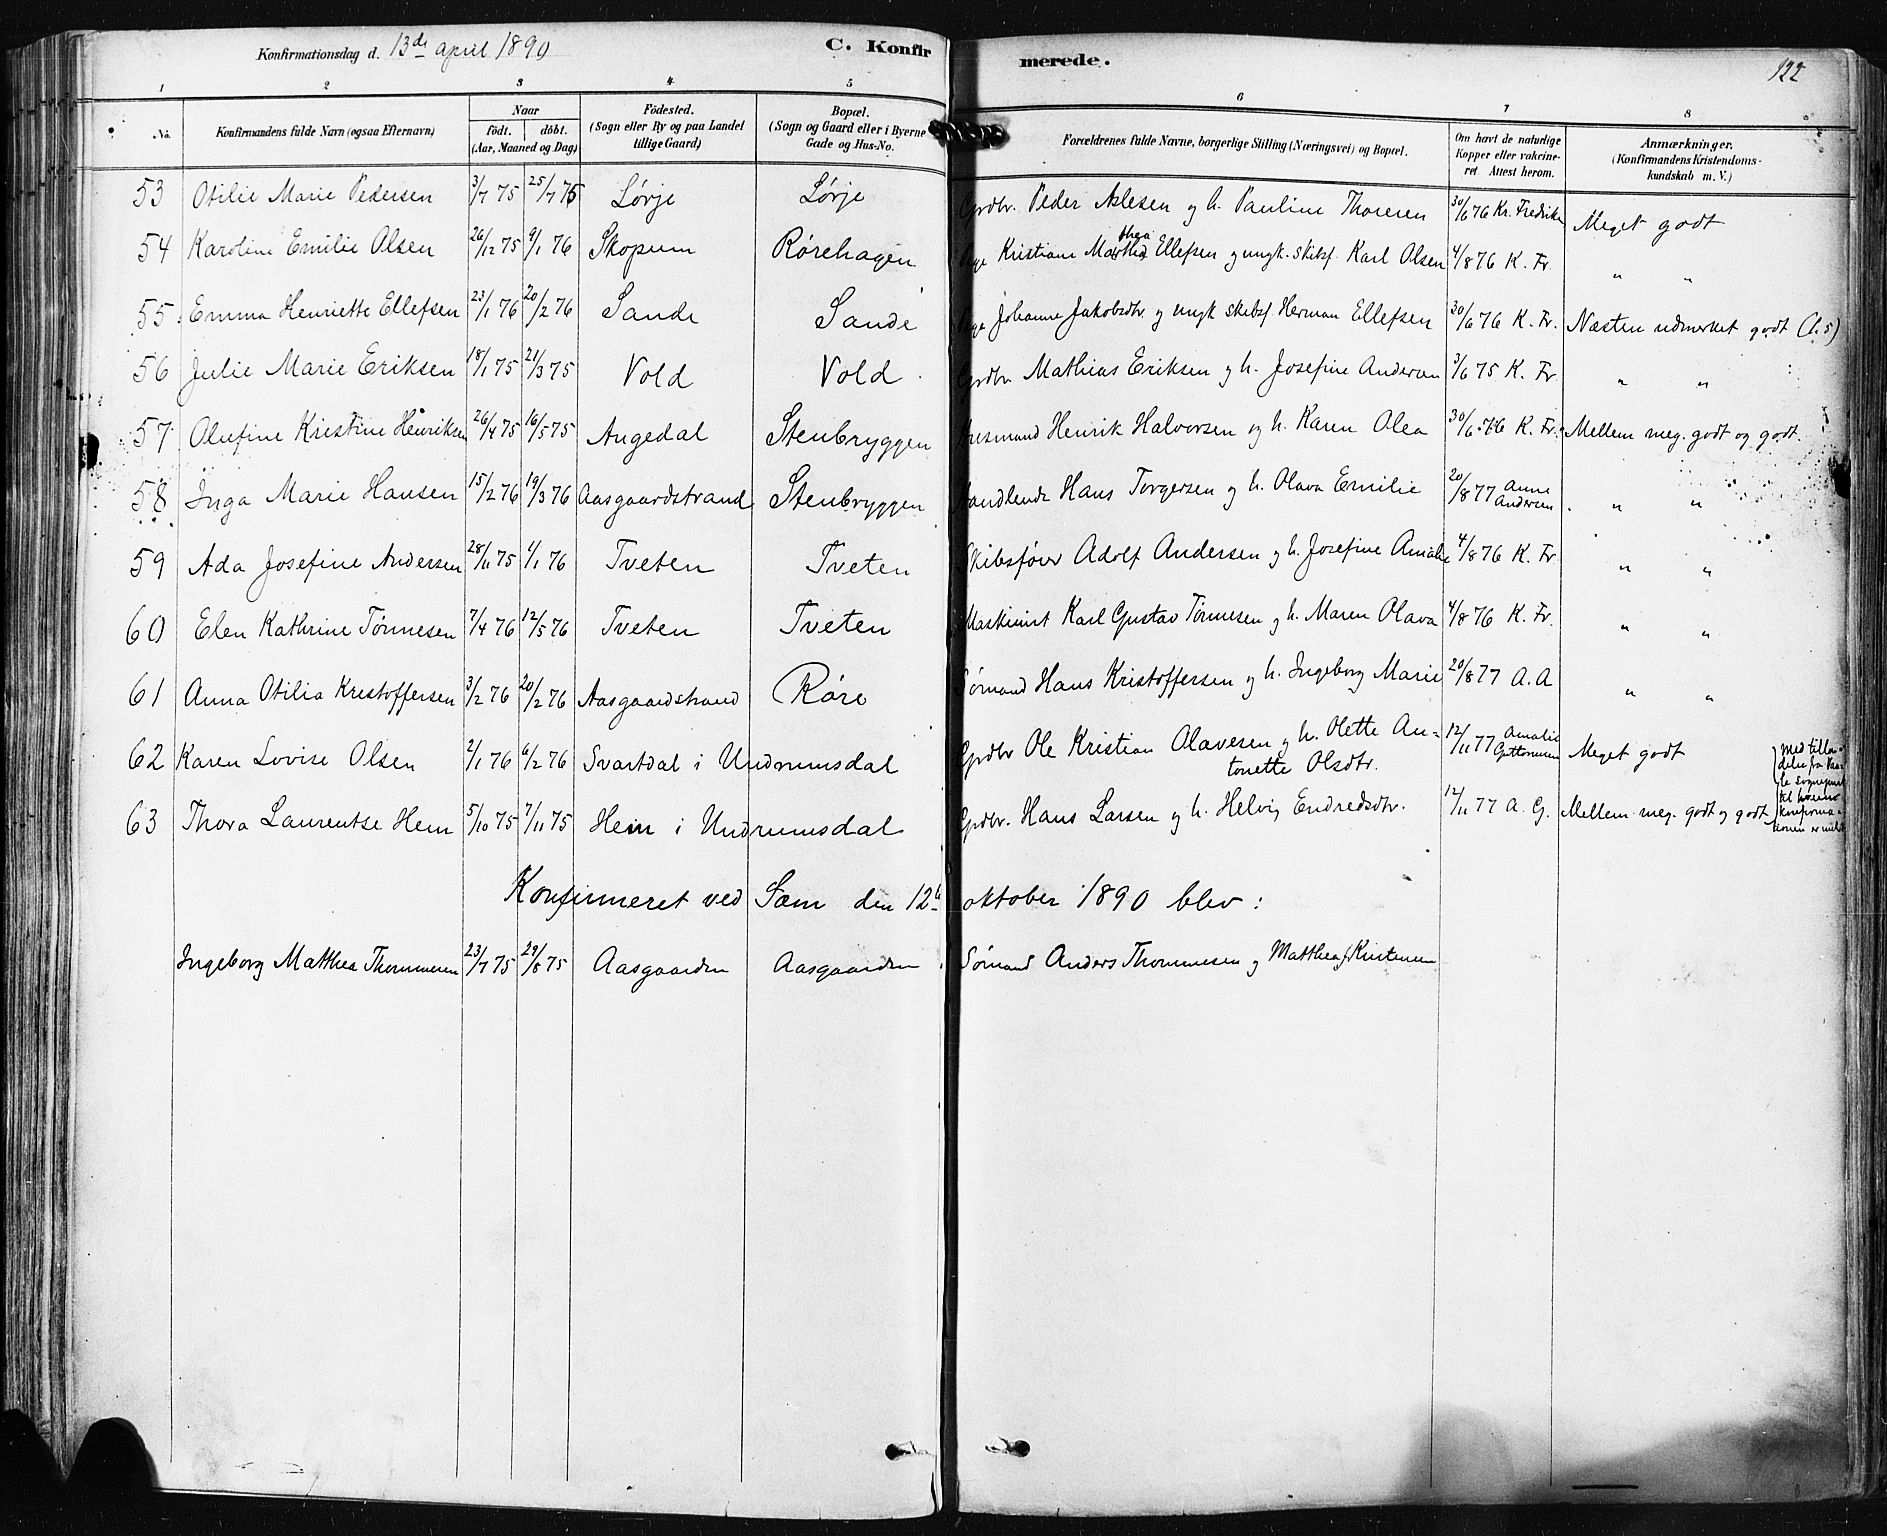 Konfirmationsdag d. 13de april 1890 C. Konfir merede. 122
1 2 3 4 5 6 7 8
No. Konfirmandens fulde Navn (ogsaa Efternavn) Naar födt. döbt. (Aar, Maaned og Dag) Födested. (Sogn eller By og paa Landet tillige Gaard) Bopæl. (Sogn og Gaard eller i Byerne Gade og Hus-No. Forældrenes fulde Navne, borgerlige Stilling (Næringsvei) og Bopæl. Om havt de naturlige Kopper eller vakcineret. Attest herom. Anmærkninger. (Konfirmandens Kristendomskundskab m. V.)
53 Otilie Marie Pedersen 3/7 75 25/7 75 Lørje Lørje Grdbr. Peder Aslesen og h. Pauline Thoresen 30/6 76 Kr. Fredriksen Meget godt
54 Karoline Emilie Olsen 26/12 75 9/1 76 Skopum Rørehagen Kristiane Mathea Ellefsen og ungk. skibsf. Karl Olsen 4/8 76 K. Fr. " "
55. Emma Henriette Ellefsen 23/1 76 20/2 76 Sande Sande Johanne Jakobsdtr. og ungk skibsf Herman Ellefsen 30/6 76 K. Fr. Næsten udmerket godt (1.5)
56 Julie Marie Eriksen 18/1 75 21/3 75 Vold Vold Grdbr. Mathias Eriksen og h. Josefine Andersen 3/6 75 K. Fr " "
57 Olufine Kristine Henriksen 26/4 75 16/5 75 Augedal Stenbryggen Henrik Halvorsen og h. Karen Olea 30/6 76 K. Fr. Mellem meg. godt og godt.
58 Inga Marie Hansen 15/2 76 19/3 76 Aasgaardstrand Stenbryggen Handlende Hans Torgersen og h. Olava Emilie 20/8 77 Anne Andersen " "
59 Ada Josefine Andersen 28/11 75 1/1 76 Tveten Tveten Skibsfører Adolf Andersen og h. Josefine Amalie 4/8 76 K. Fr " "
60 Elen Kathrine Tønnesen 7/4 76 12/5 76 Tveten Tveten Maskinist Karl Gustav Tønnesen og h. Maren Olava 4/8 76 K. Fr. " "
61 Anna Otilia Kristoffersen 3/2 76 20/2 76 Aasgaardstrand Røre Sømand Hans Kristoffersen og h. Ingeborg Marie 20/8 77 A. A " "
62 Karen Lovise Olsen 2/1 76 6/2 76 Svartdal i Undrumsdal Grdbr Ole Kristian Olavesen og h. Olette An-
tonette Olsdtr. 12/11 77 Amalie Guttormsen Meget godt
63 Thora Laurentse Hem 5/10 75 7/11 75 Hem i Undrumsdal Grdbr. Hans Larsen og h. Helvig Endredsdtr. 12/11 77 A. G. Mellem meg. godt og godt
Konfirmeret ved Sæm den 12te oktober 1890 blev:
Ingeborg Matthea Thommesen 23/7 75 29/8 75 Aasgaarden Aasgaarden Sømand Anders Thommesen og Matthea f. Kristensen